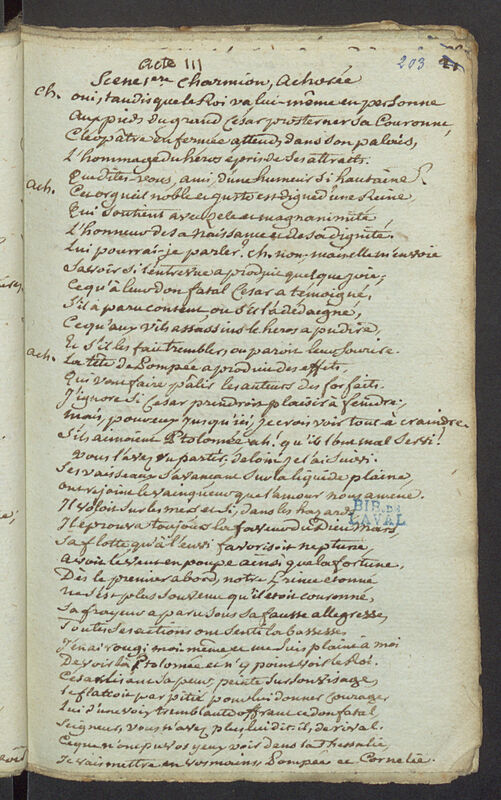 Acte III
203
Scene 1ere Charmion, Achorée
Ch. oui, tandis que le Roi va lui-même en personne
Aux pieds du grand Cesar prosterner sa Couronne,
Cléopâtre enfermée attend, dans son palais,
L'hommage du heros épris de ses attraits.
Que dites-vous, ami, d'une humeur si hautaine?
Ach. Cet orgueil noble et juste est digne d'une Reine
Qui soutient avec zele et magnanimité,
L'honneur de sa naissance et de sa dignité.
Lui pourrai-je parler? Ch. non, mais elle m'envoie
Savoir si l'entrevue a produit quelque joie;
Ce qu'à l'aspect du don fatal Cesar a témoigné,
S'il a paru content, ou s'il l'a dédaigné,
Ce qu'aux vils assassins le heros a pu dire,
Et s'il les fait trembler, ou paroit leur sourire.
Ach. La tête de Pompée a produit des effets
Qui vont faire pâlir les auteurs des forfaits.
J'ignore si Cesar prendroit plaisir à feindre;
mais, pour eux jusqu'ici, je crois voir tout à craindre
S'ils aimoient Ptolomée ah! qu'ils l'ont mal servi!
Vous l'avez vu partir, de loin je l'ai suivi.
Ses vaisseaux s'avançant sur la liquide plaine,
ont rejoint le vainqueur que l'amour nous amene.
Il voloit sur les mers et si, dans les hazards
Il éprouva toujours la faveur du Dieu Mars
Sa flotte qu'à l'envi favorisoit neptune,
Avoit le vent en poupe ainsi que la fortune.
Dès le premier abord, notre Prince étonné
ne s'est plus souvenu qu'il étoit couronné,
Sa frayeur a paru sous sa fausse allegresse,
Toutes ses actions ont senti la bassesse
J'en ai rougi moi même et me suis plaint à moi
De voir là Ptolomée et n'y point voir le Roi.
César lisant sa peur peinte sur son visage,
le flattoit par pitié pour lui donner courage
Lui d'une voix tremblante offrant ce don fatal,
Seigneur, vous n'avez plus, lui dit-il, de rival.
Ce que n'ont pu vos yeux voir dans la Thessalie,
Je vais mettre en vos mains, Pompée et Cornelie.
BIB. DE
LAVAL